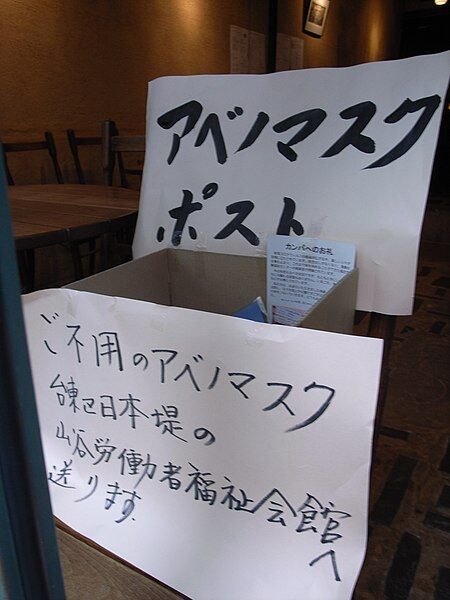 アベノマスク
ポスト
カンパへのお礼
ご不用のアベノマスク
台東区日本堤の
山谷労働者福祉会館
へ
送ります.